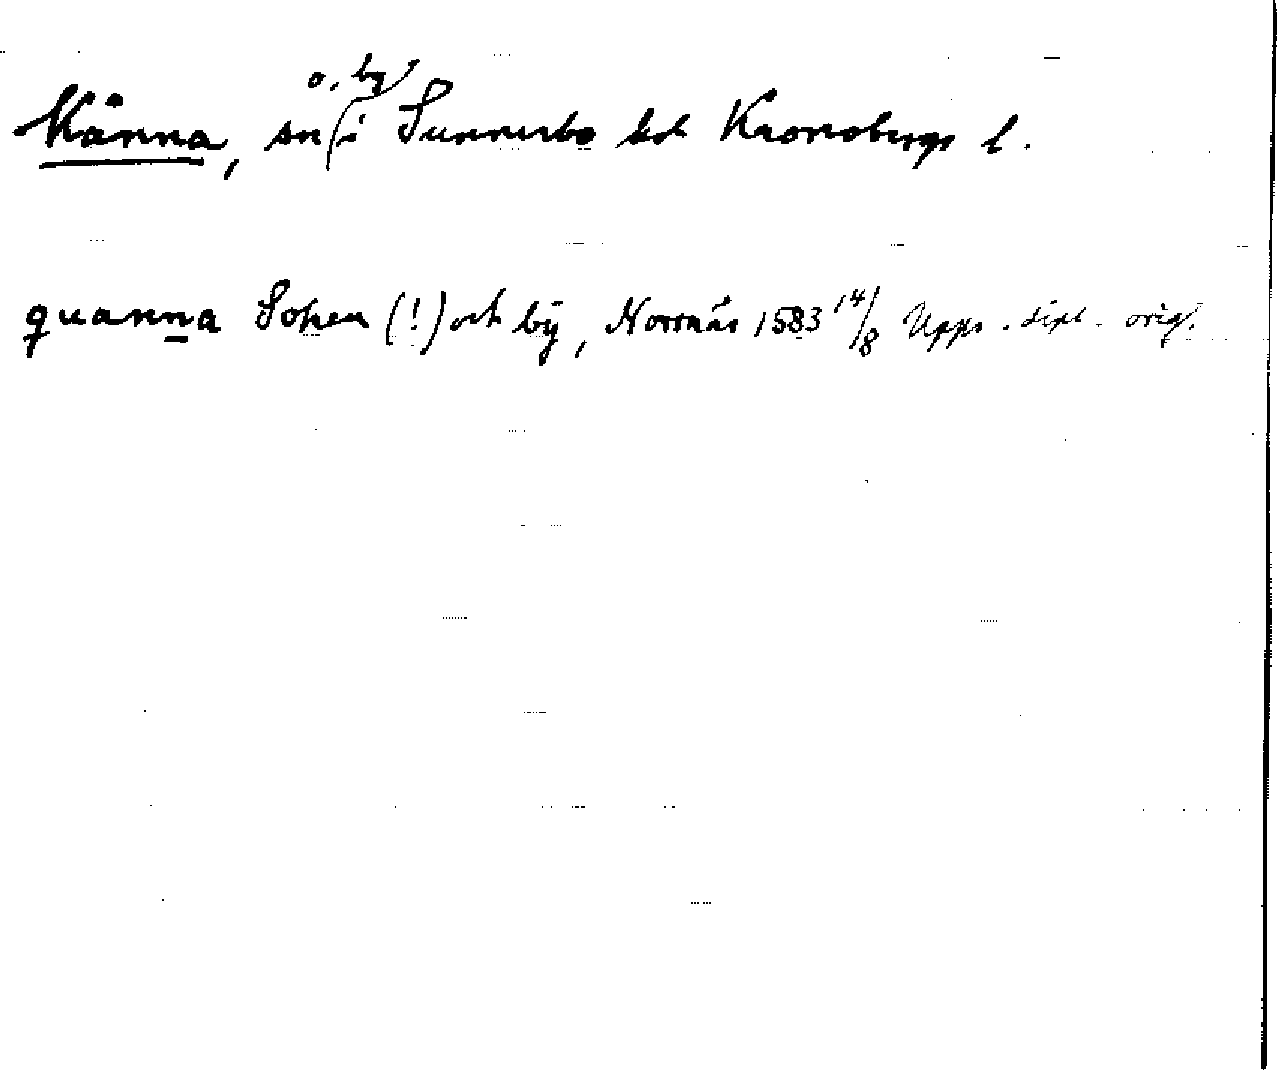 Kånna, sn o. by i Sunnerbo hd Kronobergs l.
quanna Soken (!) och bÿ, Norrnäs 1583 14/8 Upps. dipl. orig.